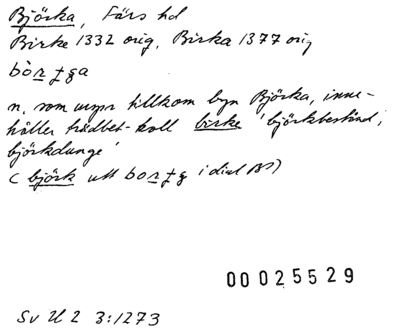 Björka, Färs hd
Birke 1332 orig, Birka 1377 orig
n, som urspr tillkom byn Björka, inne-
håller trädbet-koll birke 'björkbestånd,
björkdunge'
(björk utt i dial)
00025529
Sv U 2 3:1273